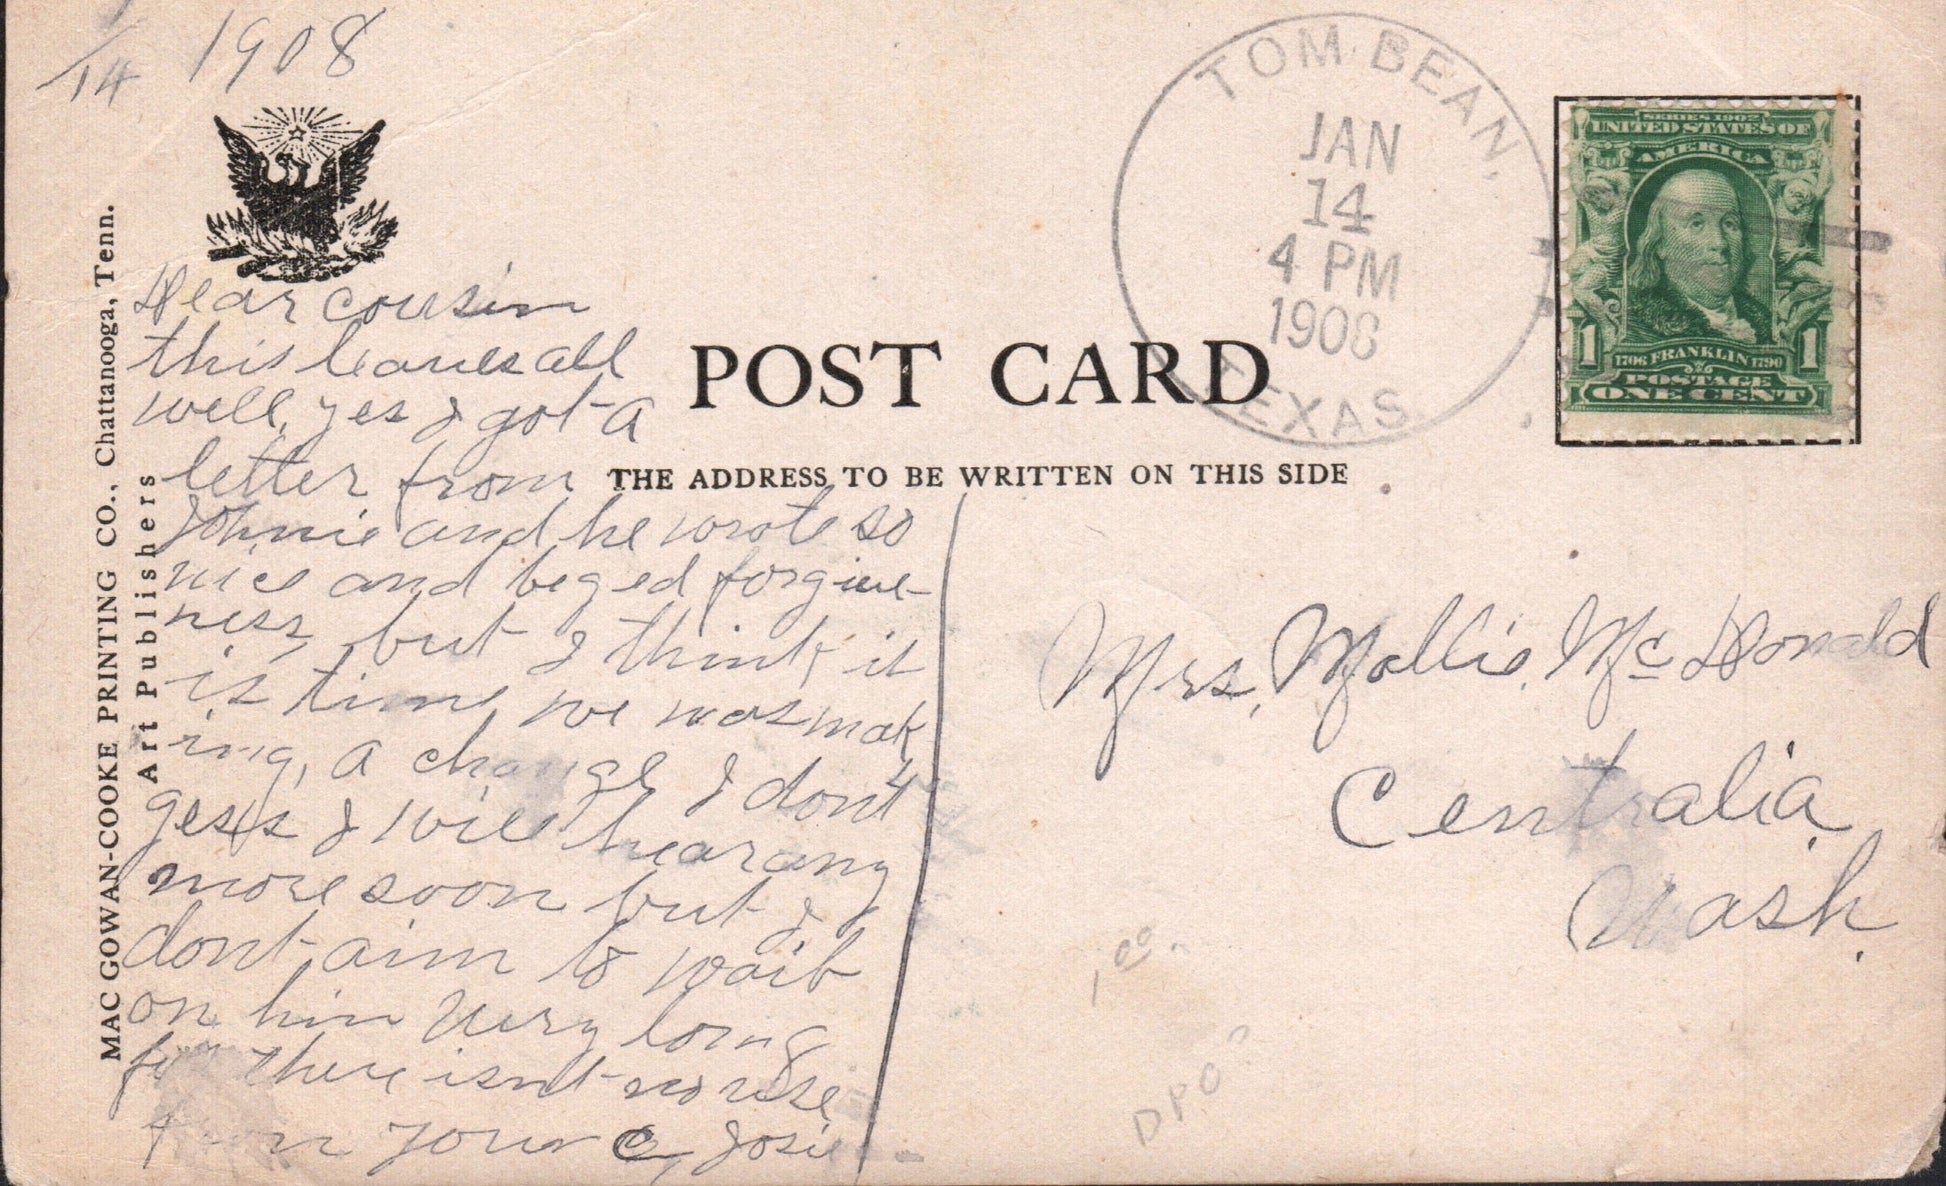 1/14 1908
TOM BEAN,
JAN
14
4 PM
1908
TEXAS
SERIES 1902
UNITED STATES OF
AMERICA
1 1706 FRANKLIN 1790 1
POSTAGE
ONE CENT
MAC GOWAN-COOKE PRINTING CO., Chattanooga, Tenn.
Art Publishers
POST CARD
THE ADDRESS TO BE WRITTEN ON THIS SIDE
Dear cousin
this leaves all
well, yes I got a
letter from
Johnie and he wrote so
nice and beged forgive-
ness, but I think it
is time we was mak
ing, a change I dont
gess I will hear any
more soon but I
dont aim to wait
on him very long
for there isnt no use
from your C, Josie
Mrs, Mollie, Mc Donald
Centralia,
Wash.
1 00
DPO?